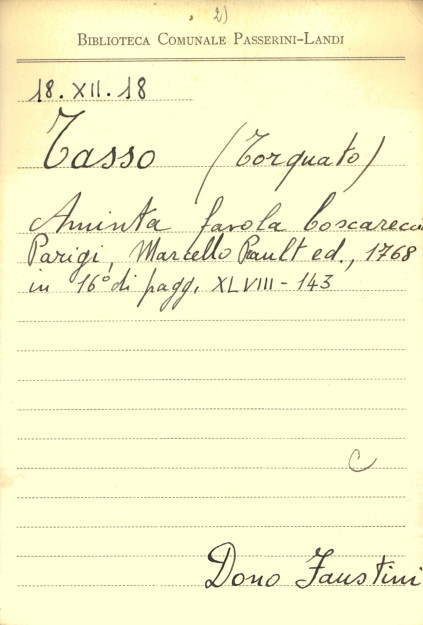 2)
BIBLIOTECA COMUNALE PASSERINI-LANDI
18.XII.18
Tasso (Torquato)
Aminta favola boscareccia
Parigi, Marcello Prault ed., 1768
in 16° di pagg. XLVIII - 143
C
Dono Faustini